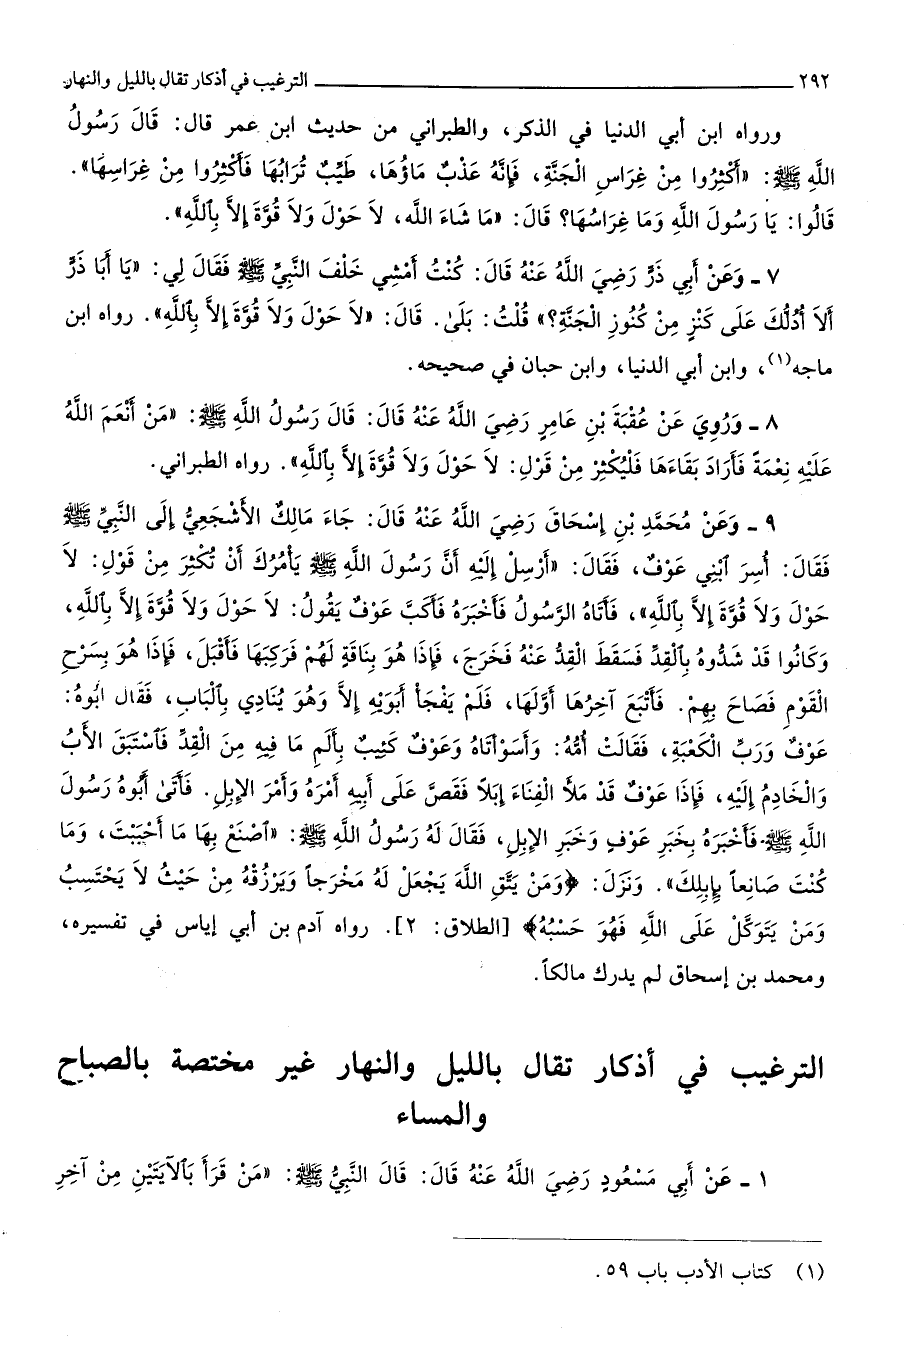 ٢٩٢ الترغيب في أذكار تقال بالليل والنهار
ورواه ابن أبي الدنيا في الذكر، والطبراني من حديث ابن عمر قال: قَالَ رَسُولُ
اللَّهِ ﷺ: «أَكْثِرُوا مِنْ غِرَاسِ الْجَنَّةِ، فَإِنَّهُ عَذْبٌ مَاؤُهَا، طَيِّبٌ تُرَابُهَا فَأَكْثِرُوا مِنْ غِرَاسِهَا».
قَالُوا: يَا رَسُولَ اللَّهِ وَمَا غِرَاسُهَا؟ قَالَ: «مَا شَاءَ اللَّه، لاَ حَوْلَ وَلاَ قُوَّةَ إِلاَّ بِٱللَّهِ».
٧ ـ وَعَنْ أَبِي ذَرٍّ رَضِيَ اللَّهُ عَنْهُ قَالَ: كُنْتُ أَمْشِي خَلْفَ النَّبِيِّ ﷺ فَقَالَ لِي: «يَا أَبَا ذَرٍّ
أَلاَ أَدُلُّكَ عَلَى كَنْزٍ مِنْ كُنُوزِ الْجَنَّةِ؟» قُلْتُ: بَلَىٰ. قَالَ: «لاَ حَوْلَ وَلاَ قُوَّةَ إِلاَّ بِٱللَّهِ». رواه ابن
ماجه(١)، وابن أبي الدنيا، وابن حبان في صحيحه.
٨ ـ وَرُوِيَ عَنْ عُقْبَةَ بْنِ عَامِرٍ رَضِيَ اللَّهُ عَنْهُ قَالَ: قَالَ رَسُولُ اللَّهِ ﷺ: «مَنْ أَنْعَمَ اللَّهُ
عَلَيْهِ نِعْمَةً فَأَرَادَ بَقَاءَهَا فَلْيُكْثِرْ مِنْ قَوْلِ: لاَ حَوْلَ وَلاَ قُوَّةَ إِلاَّ بِٱللَّهِ». رواه الطبراني.
٩ ـ وَعَنْ مُحَمَّدِ بْنِ إِسْحَاقَ رَضِيَ اللَّهُ عَنْهُ قَالَ: جَاءَ مَالِكٌ الأَشْجَعِيُّ إِلَى النَّبِيِّ ﷺ
فَقَالَ: أُسِرَ ٱبْنِي عَوْفٌ، فَقَالَ: «أَرْسِلْ إِلَيْهِ أَنَّ رَسُولَ اللَّهِ ﷺ يَأْمُرُكَ أَنْ تُكْثِرَ مِنْ قَوْلِ: لاَ
حَوْلَ وَلاَ قُوَّةَ إِلاَّ بِٱللَّهِ»، فَأَتَاهُ الرَّسُولُ فَأَخْبَرَهُ فَأَكَبَّ عَوْفٌ يَقُولُ: لاَ حَوْلَ وَلاَ قُوَّةَ إِلاَّ بِٱللَّهِ،
وَكَانُوا قَدْ شَدُّوهُ بِٱلْقِدِّ فَسَقَطَ الْقِدُّ عَنْهُ فَخَرَجَ، فَإِذَا هُوَ بِنَاقَةٍ لَهُمْ فَرَكِبَهَا فَأَقْبَلَ، فَإِذَا هُوَ بِسَرْحِ
الْقَوْمِ فَصَاحَ بِهِمْ. فَأَتْبَعَ آخِرُهَا أَوَّلَهَا، فَلَمْ يَفْجَأْ أَبَوَيْهِ إِلاَّ وَهُوَ يُنَادِي بِٱلْبَابِ، فَقَالَ أَبُوهُ:
عَوْفٌ وَرَبِّ الْكَعْبَةِ، فَقَالَتْ أُمُّهُ: وَاسَوْأَتَاهُ وَعَوْفٌ كَئِيبٌ بِأَلَمِ مَا فِيهِ مِنَ الْقِدِّ فَٱسْتَبَقَ الأَبُ
وَالْخَادِمُ إِلَيْهِ، فَإِذَا عَوْفٌ قَدْ مَلأَ الْفِنَاءَ إِبَلاً فَقَصَّ عَلَى أَبِيهِ أَمْرَهُ وَأَمْرَ الإِبِلِ. فَأَتَىٰ أَبُوهُ رَسُولَ
اللَّهِ ﷺ فَأَخْبَرَهُ بِخَبَرِ عَوْفٍ وَخَبَرِ الإِبِلِ، فَقَالَ لَهُ رَسُولُ اللَّهِ ﷺ: «ٱصْنَعْ بِهَا مَا أَحْبَبْتَ، وَمَا
كُنْتَ صَانِعاً بِإِبِلِكَ». وَنَزَلَ: ﴿وَمَنْ يَتَّقِ اللَّهَ يَجْعَلْ لَهُ مَخْرَجاً وَيَرْزُقْهُ مِنْ حَيْثُ لاَ يَحْتَسِبُ
وَمَنْ يَتَوَكَّلْ عَلَى اللَّهِ فَهُوَ حَسْبُهُ﴾ [الطلاق: ٢]. رواه آدم بن أبي إياس في تفسيره،
ومحمد بن إسحاق لم يدرك مالكاً.
الترغيب في أذكار تقال بالليل والنهار غير مختصة بالصباح
والمساء
١ ـ عَنْ أَبِي مَسْعُودٍ رَضِيَ اللَّهُ عَنْهُ قَالَ: قَالَ النَّبِيُّ ﷺ: «مَنْ قَرَأَ بَٱلآيَتَيْنِ مِنْ آخِرِ
(١) كتاب الأدب باب ٥٩.